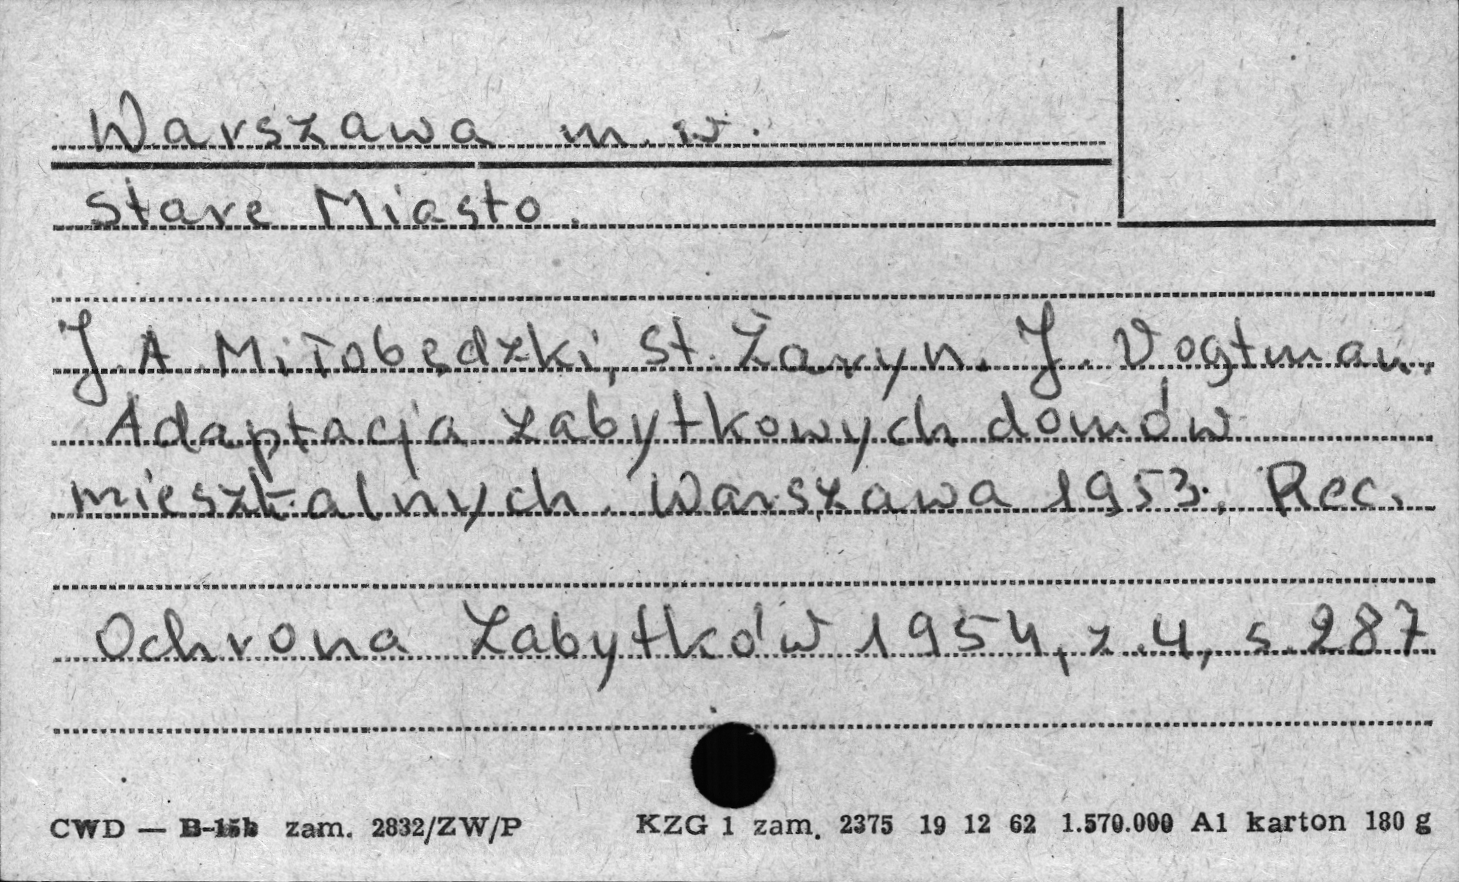 Warszawa m. w.
Stare Miasto.
J. A. Miłobędzki, St. Żaryn. J. Vogtman.
Adaptacja zabytkowych domów
mieszkalnych. Warszawa 1953. Rec.
Ochrona Zabytków 1954, z. 4, s. 287
CWD — B-15b zam. 2832/ZW/P KZG 1 zam. 2375 19 12 62 1.570.000 A1 karton 180 g